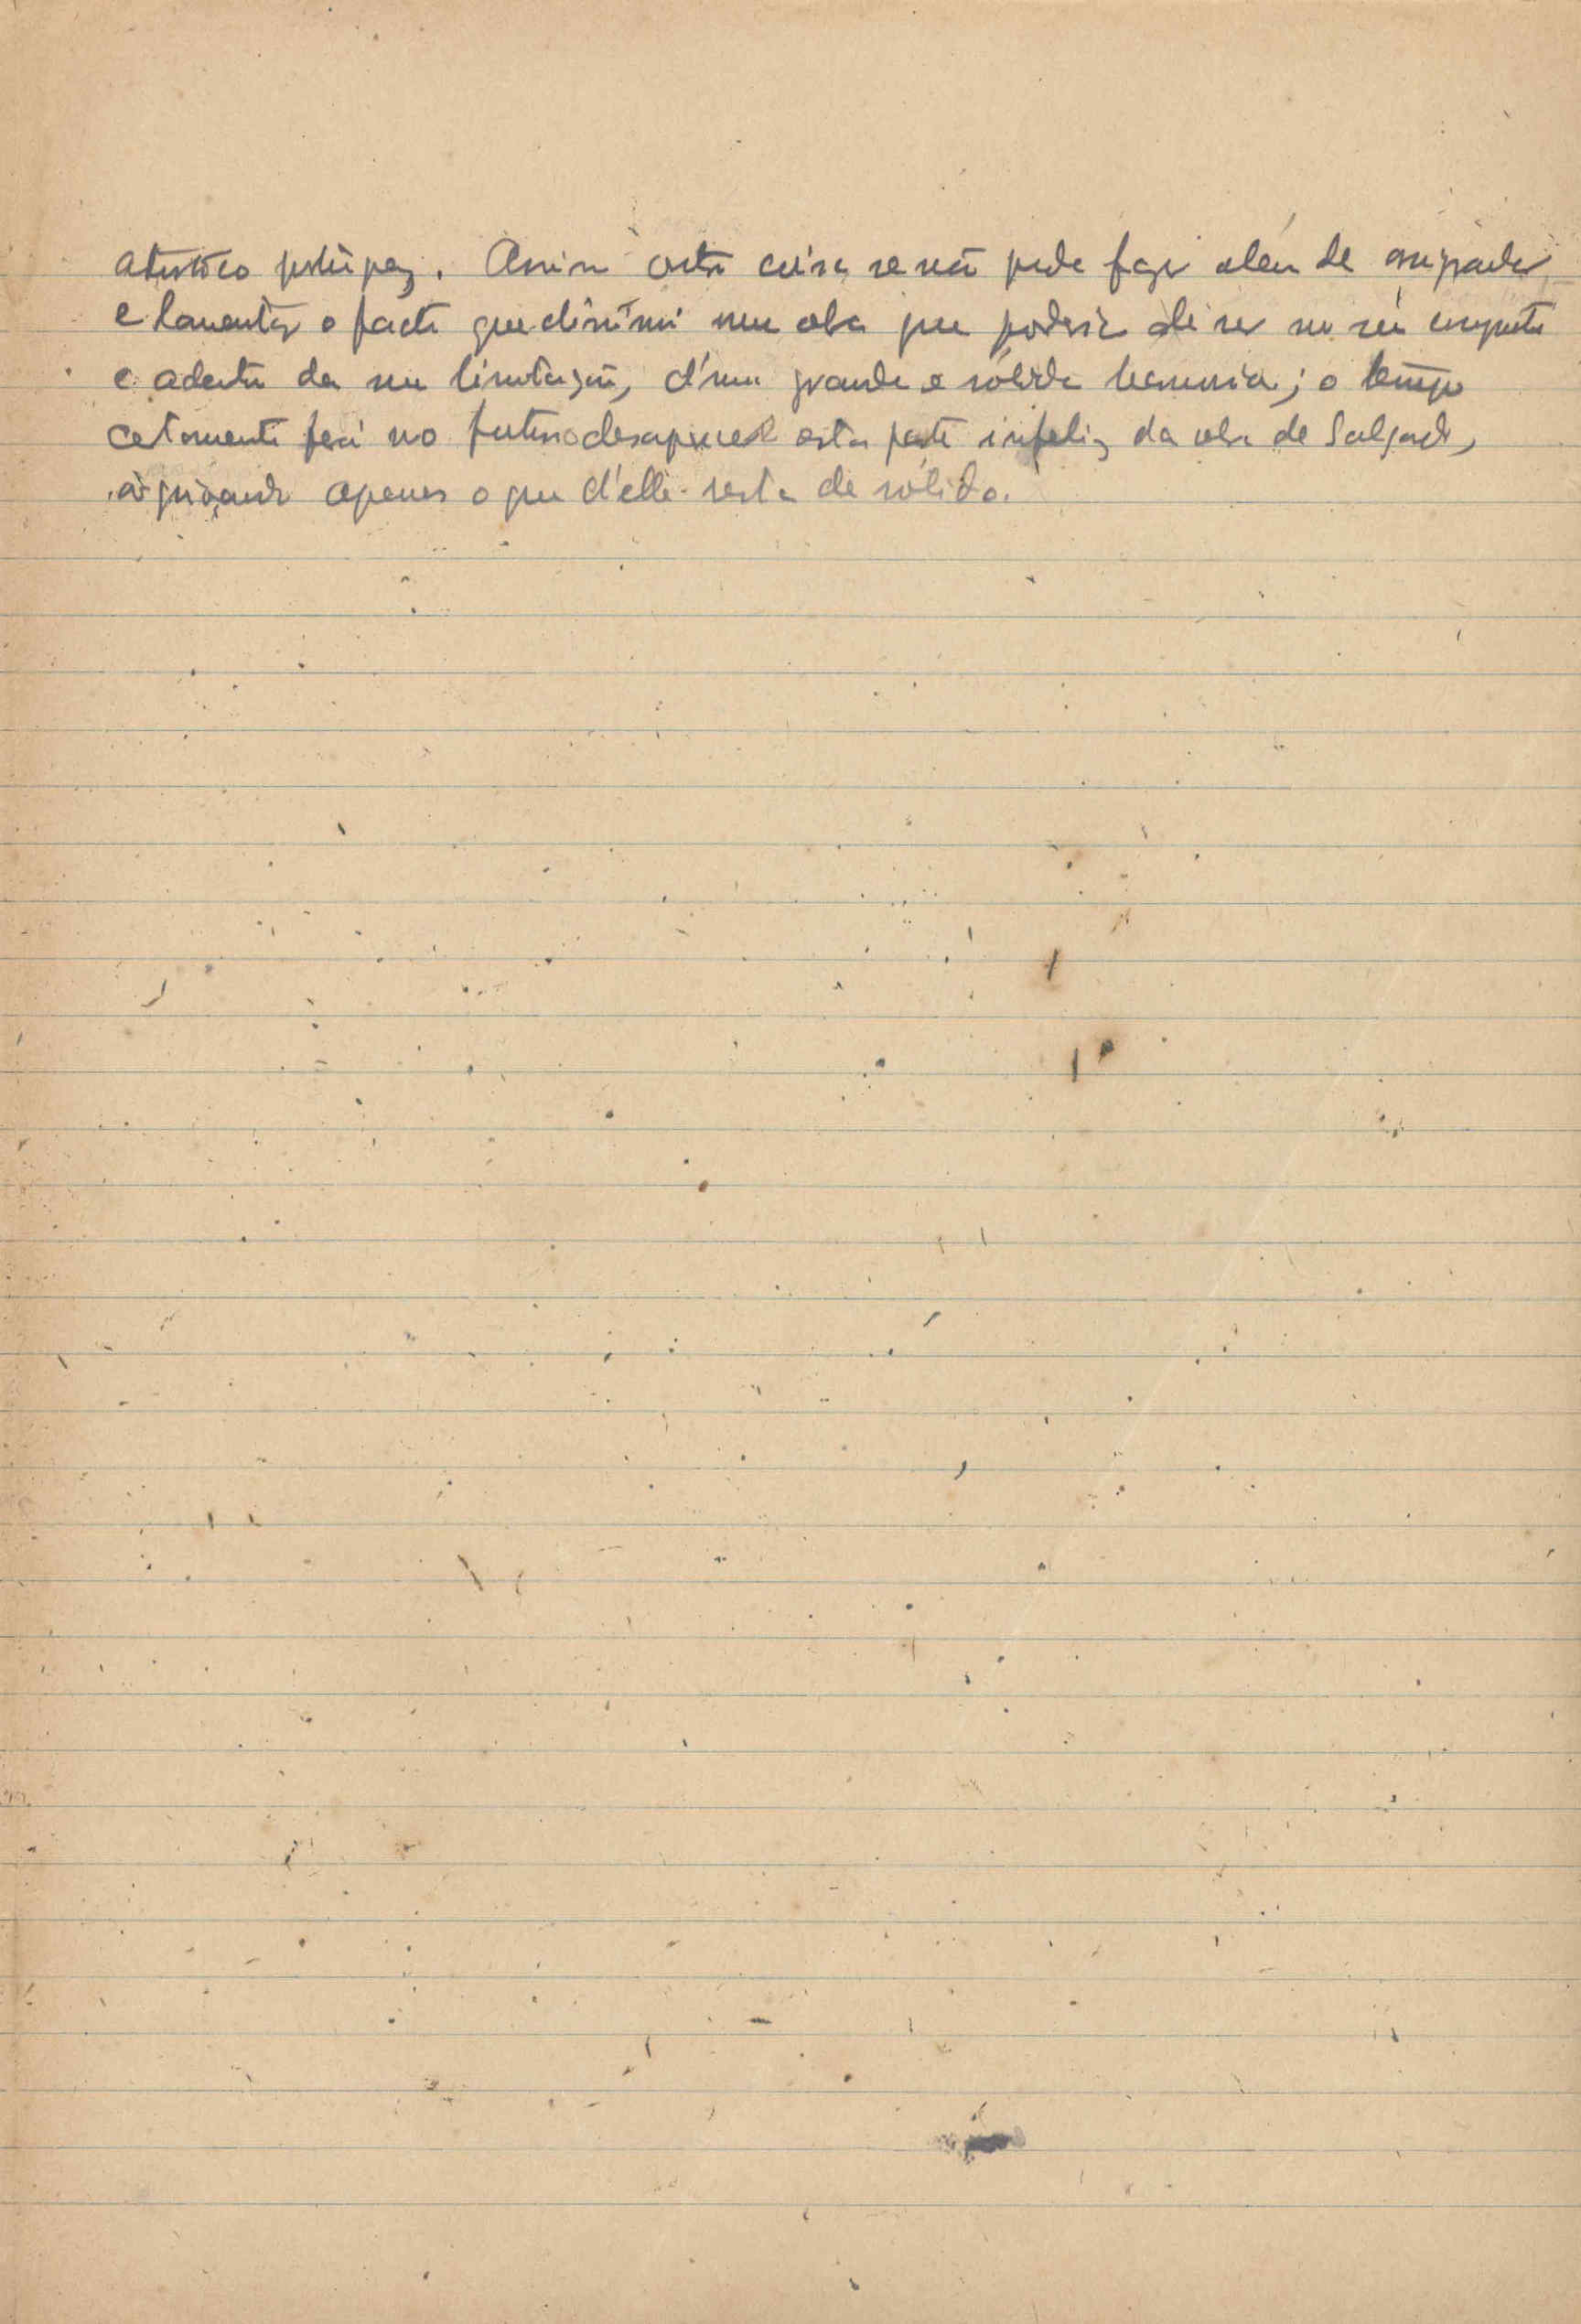 artistico      . Assim outra coisa se não pode fazer além de
e lamentar o facto que diminui uma obra que poderia ser no seu conjunto
e adentro da sua limitação, d'uma grande e sólida harmonia; o tempo
certamente fará no futuro desaparecer esta parte infeliz da obra de Salgado,
apenas o que d'elle resta de sólido.